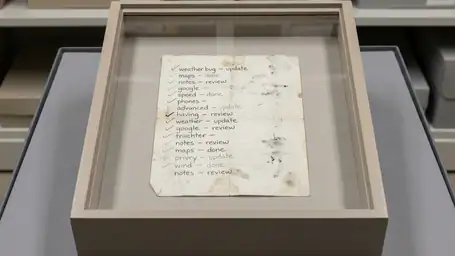 ✓ weather bug – update
✓ maps – done
✓ notes – review
✓ google –
✓ speed – done
✓ phones –
advanced – update
✓ having – review
✓ weather – update
✓ google – review
✓ –
✓ notes – review
✓ maps – done
✓ privacy – update
✓ wind – done
notes – review